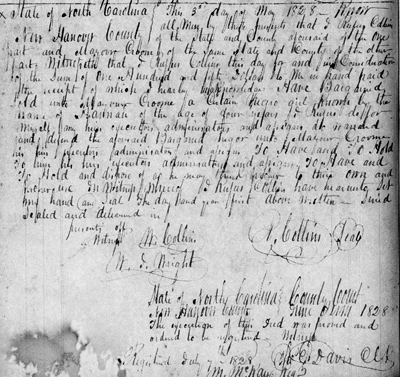 State of North Carolina } This 3rd day of May 1828 Know
New Hanover County } all Men by these presents that I Rufus Collin
of the State and County aforesaid of the one
part and Mayour Croome of the Same State and County of the other
part Witnesseth that I Rufus Collins this day for and in Consideration
of the Sum of one Hundred and fifty Dollars to Me in hand paid
the receipt of which I hereby acknowledge Have Bargained
Sold unto Mayour Croome a Certain Negro girl Known by the
Name of Hannah of the age of four years I Rufus do for
Myself my heirs executors administrators and assigns to warrant
and defend the aforesaid Bargained Negro unto Mayour Croome
his heirs executors administrators and assigns To Have and To Hold
to him his heirs executors administrators and assigns To Have and
To Hold and dispose of as he may think proper to their own and
forever use In Witness Whereof I Rufus Collins have hereunto Set
my hand and Seal The day and year first above Written Signed
Sealed and delivered in
presents off
Witness
W. Collins
R. Collins Seal
W. J. Wright
State of North Carolina County Court
New Hanover County June Term 1828
The execution of this Deed was proved and
ordered to be registered Witness
Registered July 1828 Davis Clk